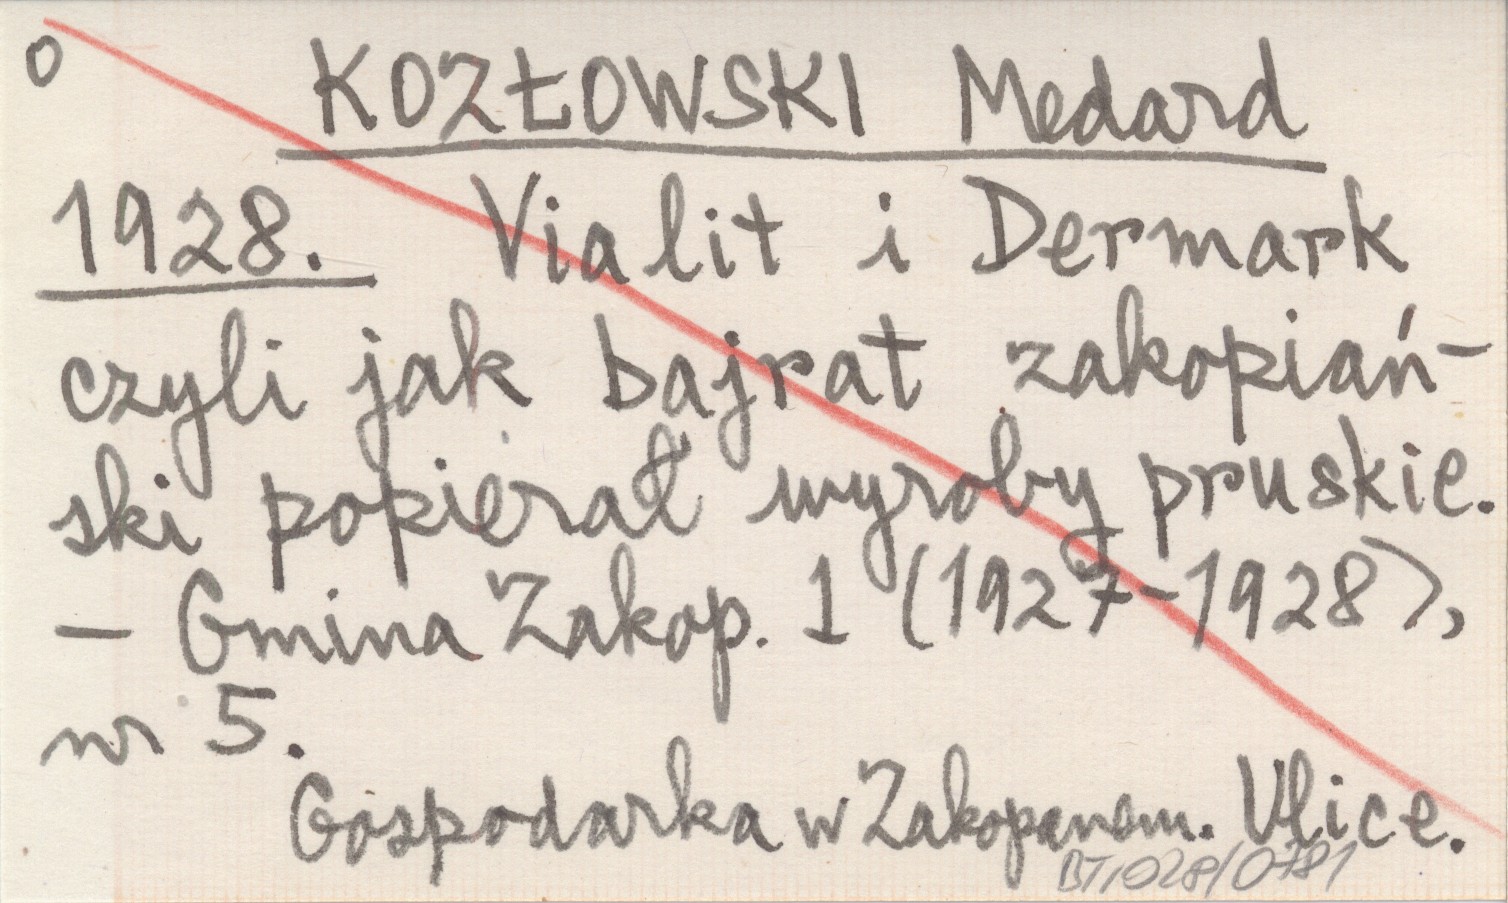 o
KOZŁOWSKI Medard
1928. Vialit i Dermark
czyli jak bajrat zakopiań-
ski popierał wyroby pruskie.
– Gmina Zakop. 1 (1927–1928),
nr 5.
Gospodarka w Zakopanem. Ulice.
BT/028/0781